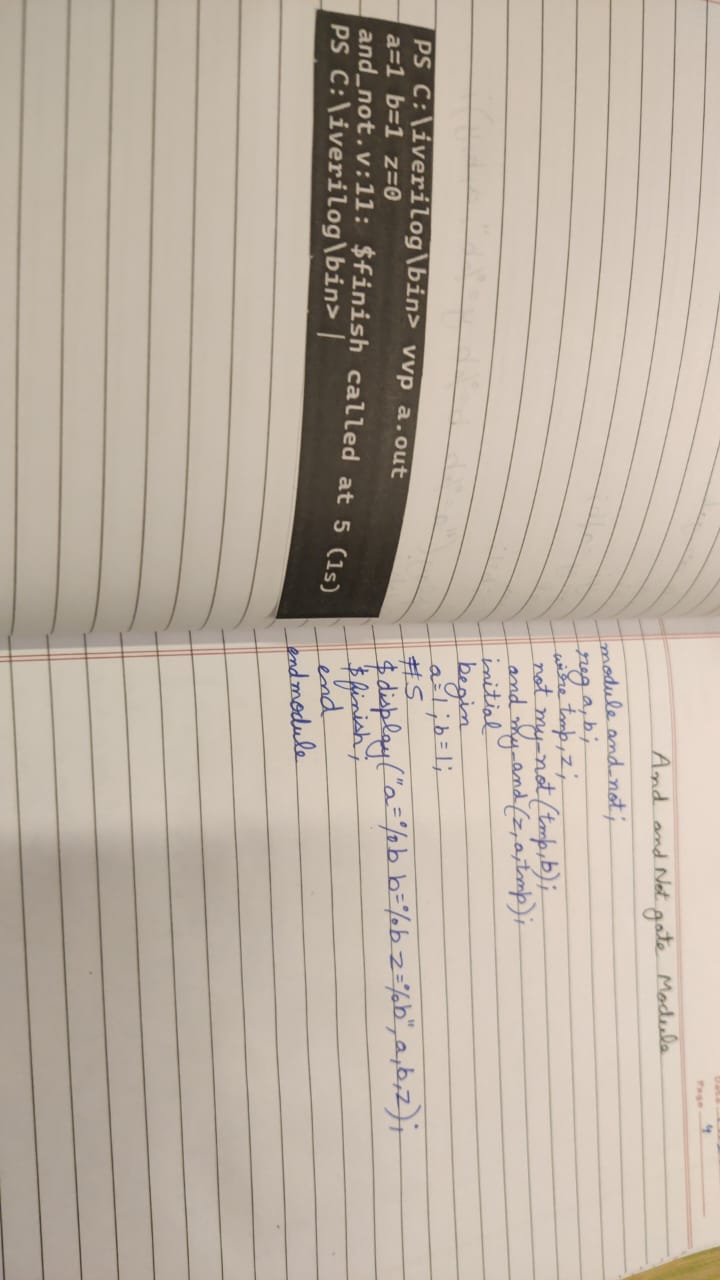 PS C:\iverilog\bin> vvp a.out
a=1 b=1 z=0
and_not.v:11: $finish called at 5 (1s)
PS C:\iverilog\bin>
Page 4
And and Not gate Module
module and_not;
reg a,b;
wire tmp,z;
not my_not(tmp,b);
and my_and(z,a,tmp);
initial
begin
a=1;b=1;
#5
$display("a=%b b=%b z=%b",a,b,z);
$finish;
end
endmodule